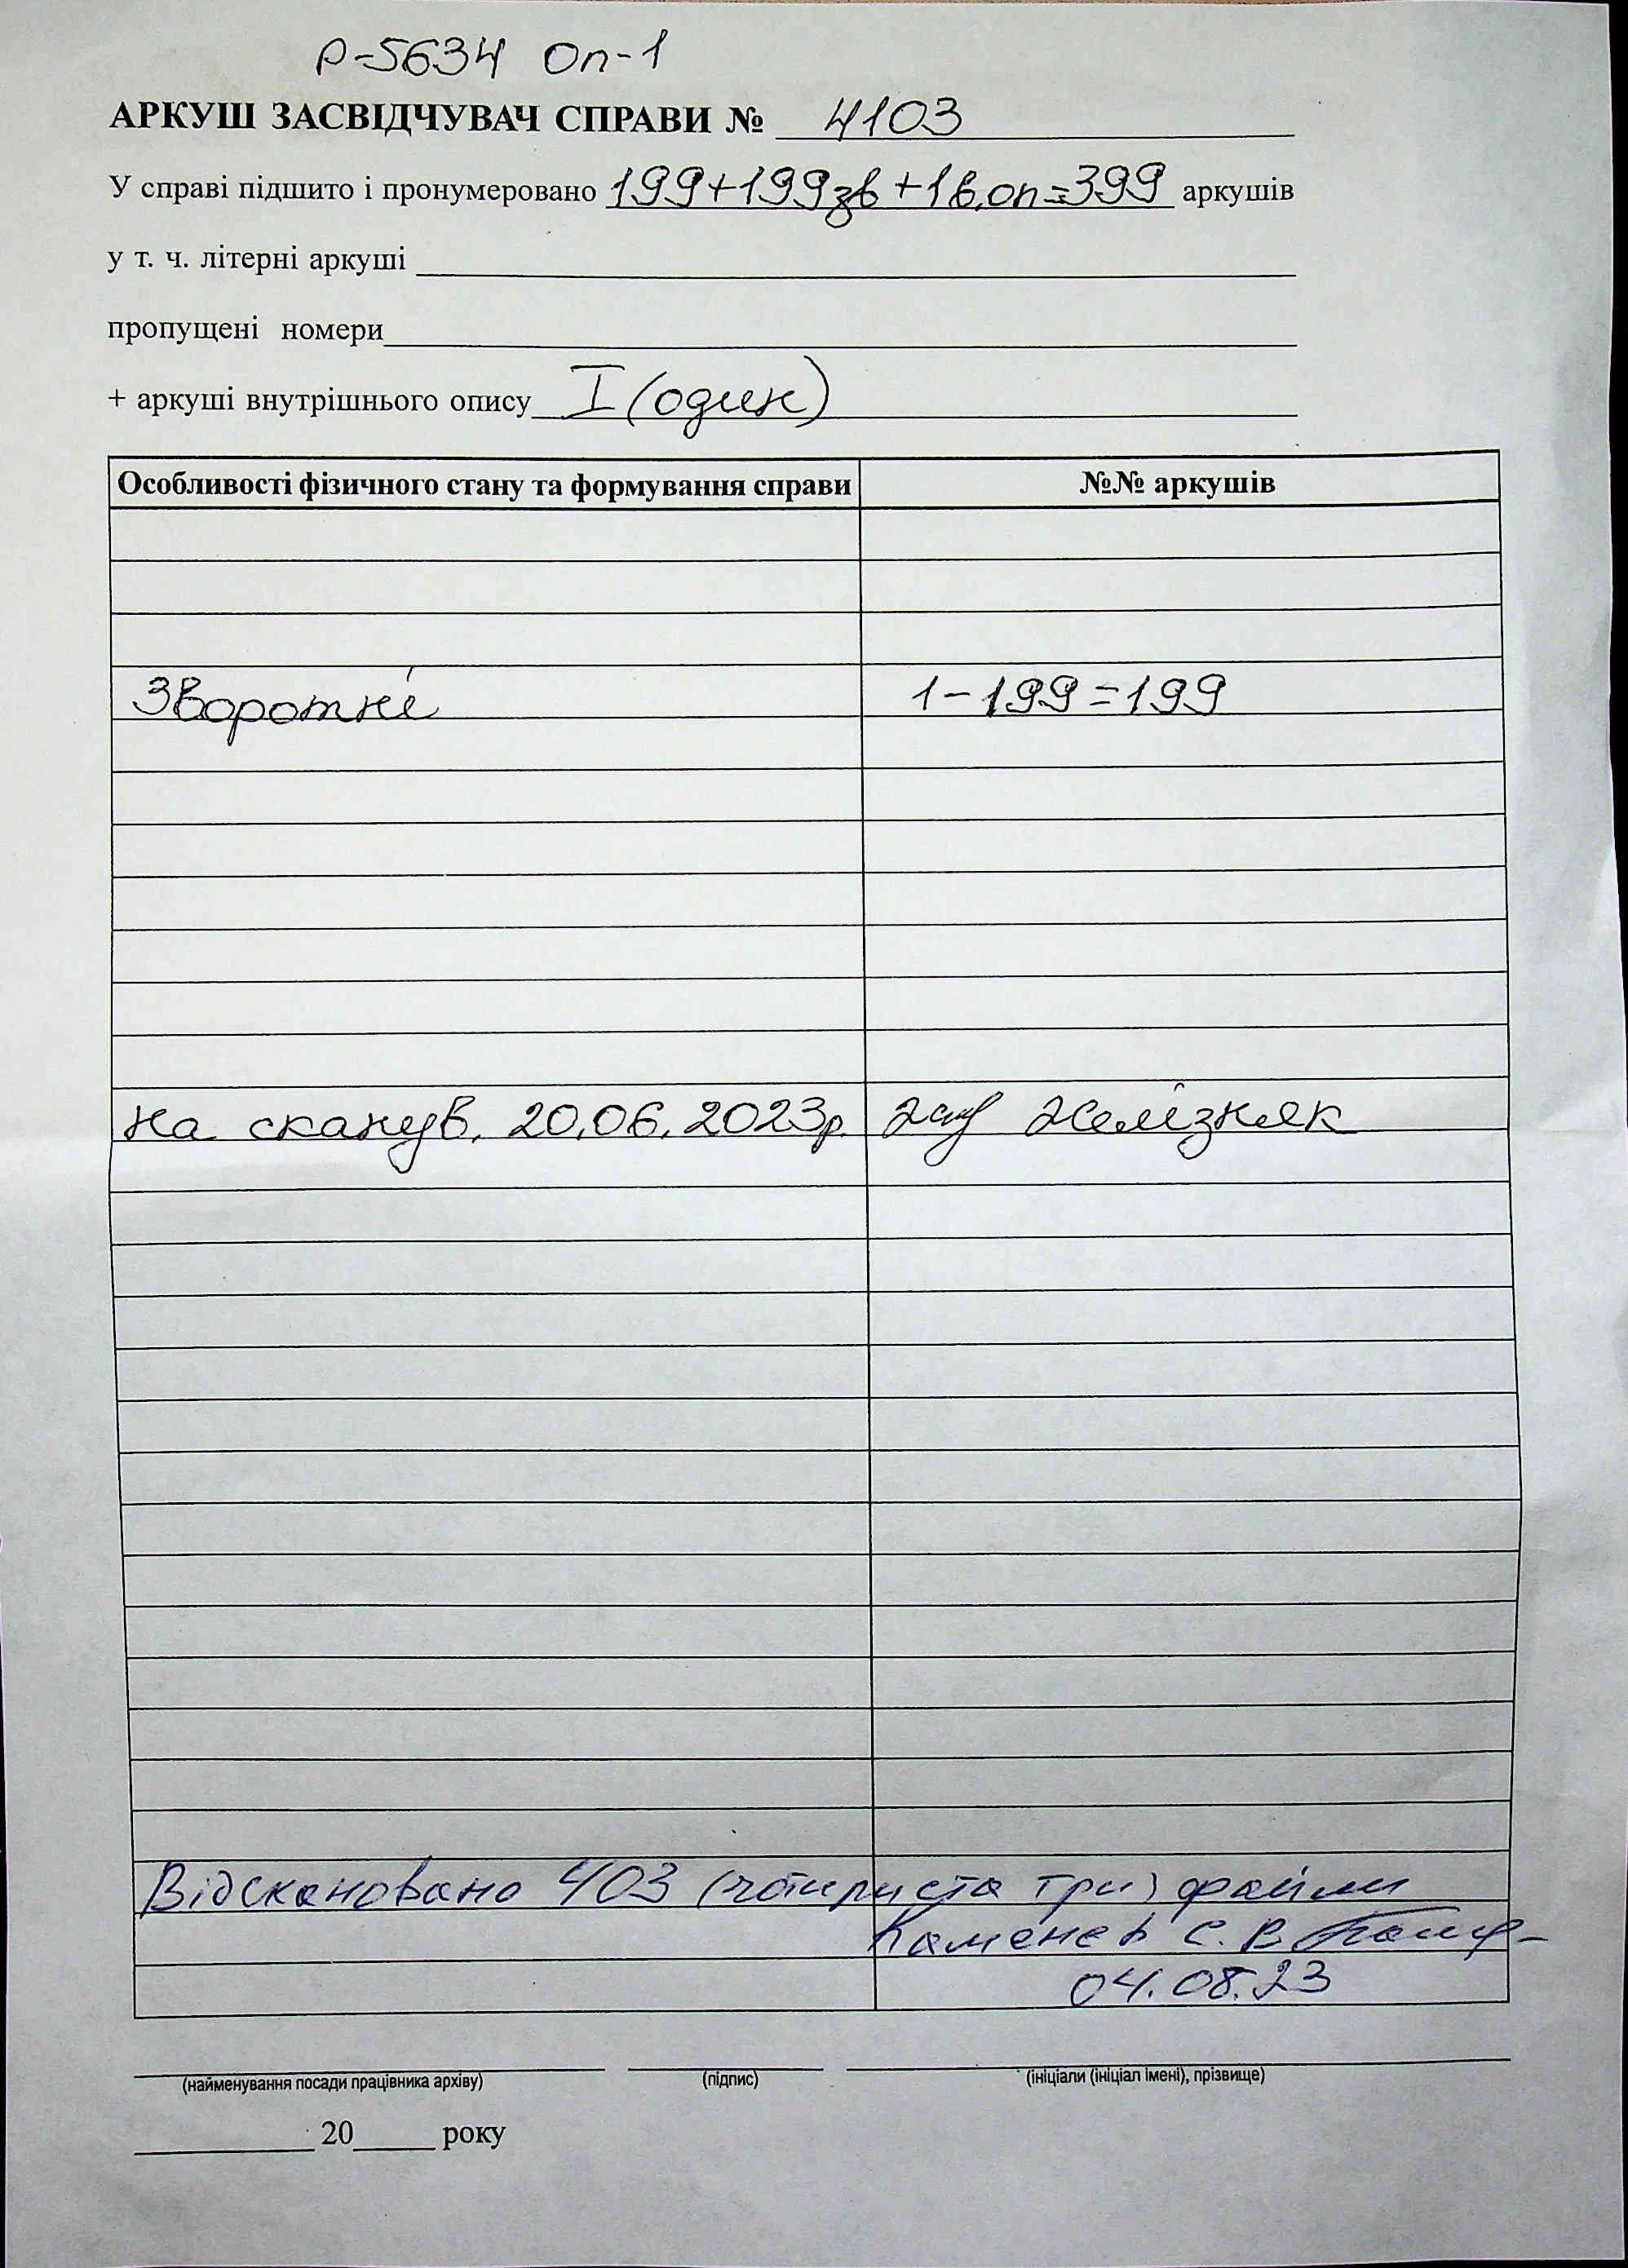 Р-5634 Оп-1
АРКУШ ЗАСВІДЧУВАЧ СПРАВИ № 4103
У справі підшито і пронумеровано 199+199зв+1в.оп=399 аркушів
у т. ч. літерні аркуші
пропущені номери
+ аркуші внутрішнього опису I (один)
Особливості фізичного стану та формування справи №№ аркушів
Зворотні 1-199=199
на сканув. 20.06.2023р. Желізняк
Відскановано 403 (чотириста три) файли
Каменев С. В.
04.08.23
(найменування посади працівника архіву) (підпис) (ініціали (ініціал імені), прізвище)
20 року